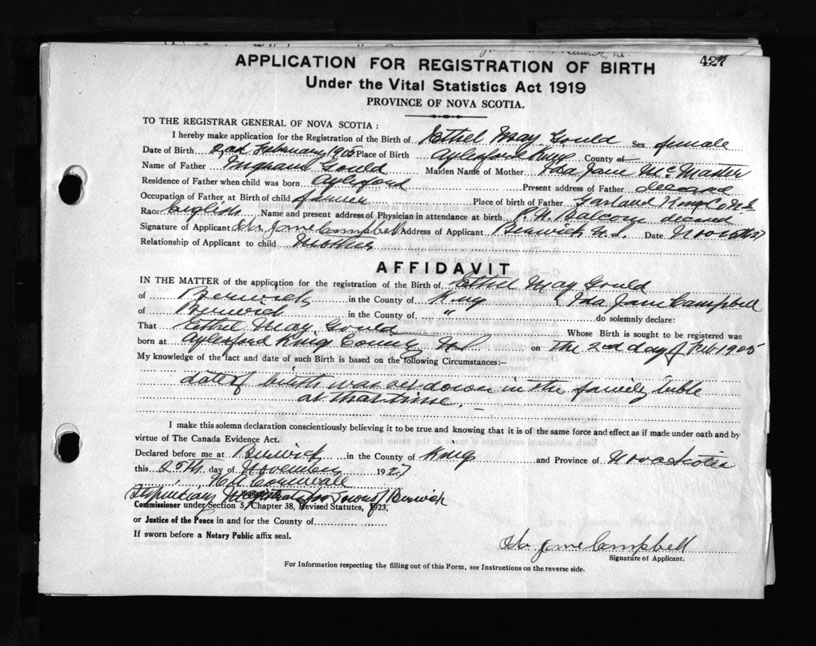 APPLICATION FOR REGISTRATION OF BIRTH 427
Under the Vital Statistics Act 1919
PROVINCE OF NOVA SCOTIA.
TO THE REGISTRAR GENERAL OF NOVA SCOTIA :
I hereby make application for the Registration of the Birth of Ethel May Gould Sex female
Date of Birth 2nd February 1905 Place of Birth Aylesford Kings County of
Name of Father Ingram Gould Maiden Name of Mother Ida Jane McMaster
Residence of Father when child was born Aylesford Present address of Father
Occupation of Father at Birth of child farmer Place of birth of Father Farland King Co N.S
Race English Name and present address of Physician in attendance at birth P.N. Balcom
Signature of Applicant Ida Jane Campbell Address of Applicant Berwick N.S. Date Nov 25th 27
Relationship of Applicant to child Mother
AFFIDAVIT
IN THE MATTER of the application for the registration of the Birth of Ethel May Gould
of Berwick in the County of King I Ida Jane Campbell
of Berwick in the County of " do solemnly declare:
That Ethel May Gould Whose Birth is sought to be registered was
born at Aylesford King County N.S. on The 2nd day of Feb 1905
My knowledge of the fact and date of such Birth is based on the following Circumstances:—
date of birth was set down in the family bible
at that time. —
I make this solemn declaration conscientiously believing it to be true and knowing that it is of the same force and effect as if made under oath and by
virtue of The Canada Evidence Act.
Declared before me at Berwick in the County of King and Province of Nova Scotia
this 25th day of November 1927
Cornwall
Stipendiary Magistrate for Town of Berwick
Commissioner under Section 5, Chapter 38, Revised Statutes, 1923,
or Justice of the Peace in and for the County of
If sworn before a Notary Public affix seal.
Ida Jane Campbell
Signature of Applicant.
For Information respecting the filling out of this Form, see Instructions on the reverse side.